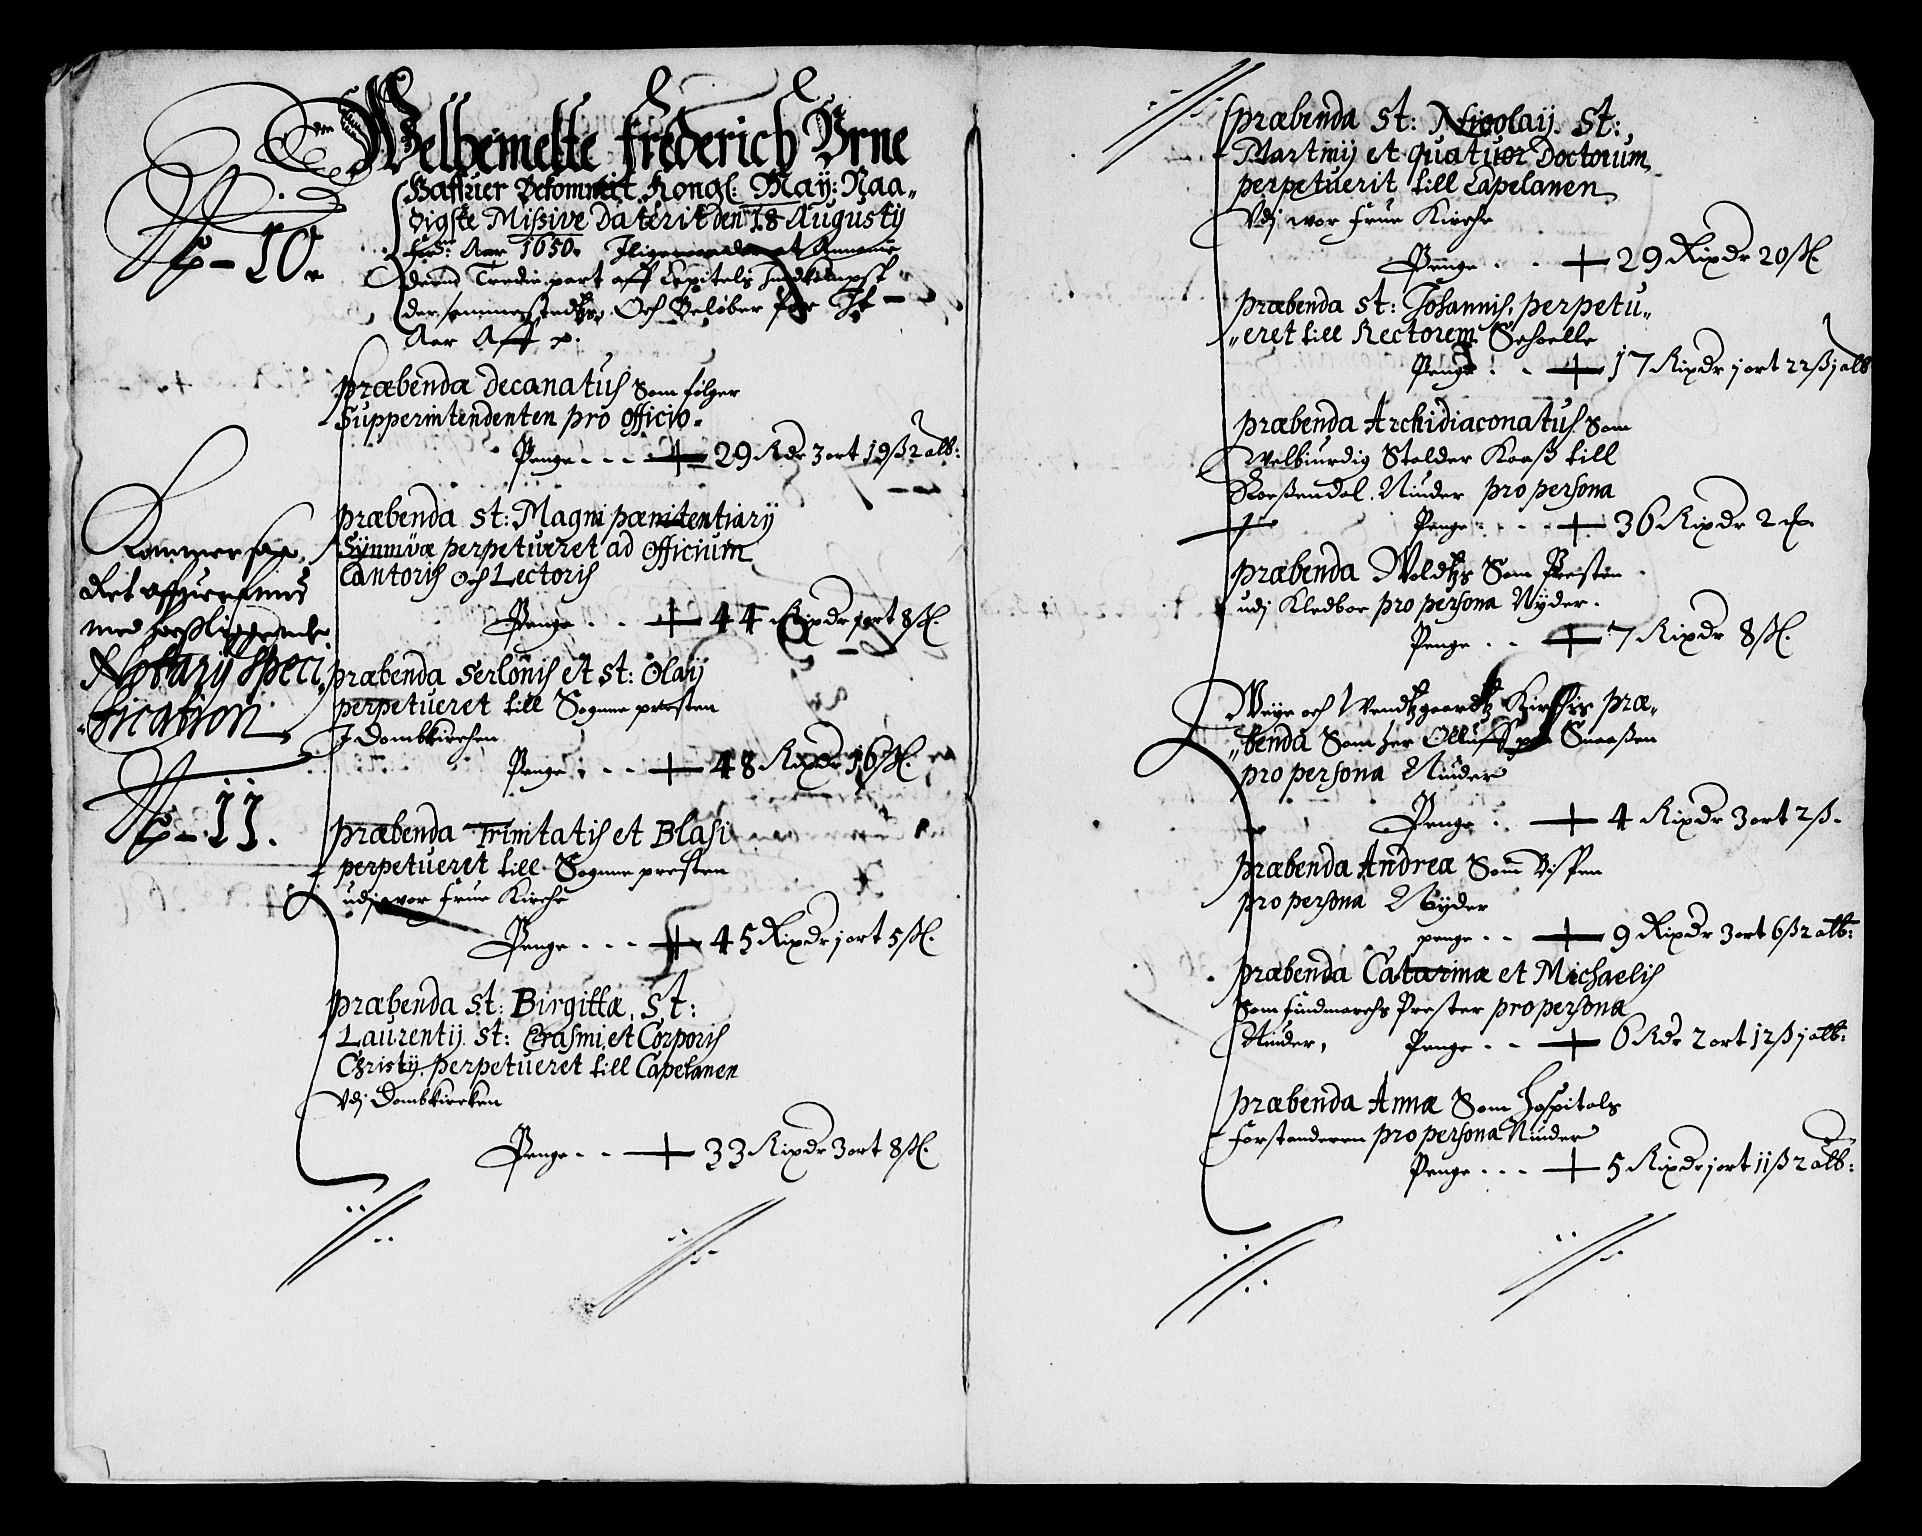 Welbemelte frederich Urne
Haffuer Bekommit Kongl: May: Naa„
digste Missive Daterit den 18 Augustij
Aar 1650.
Tredie part aff Capitels
der sammestedtz, Och Beløber for It
Aar Aff
No – 10.
Præbenda Decanatus Som følger
Supperintendenten pro officio.
Penge – – – 29 Rdr 3 ort 19 ß 2 alb:
Præbenda St: Magni pænitentiarij
perpetueret ad officium
Cantoris och Lectoris
Penge – – 44 Rixdr j ort 8 ßl.
Præbenda Serlonis et St: Olaij
perpetueret till Sogne presten
I Dombkirchen
Penge – – 48 Rixdr 16 ßl.
Præbenda Trinitatis et Blasi
perpetueret till Sogne presten
udj wor frue Kirche
Penge – – – 45 Rixdr j ort 5 ßl.
Præbenda St: Birgittæ, St:
Laurentij. St: Erasmi et Corporis
Christij. perpetueret till Capelanen
Vdj Dombkircken
Penge – – 33 Rixdr 3 ort 8 ßl.
det
med
Notarij Speci„
„fication.
No – 11.
Præbenda St: Nicolaij. St:
Martinij et quatuor Doctorum
perpetuerit till Capelanen
Vdj wor frue Kirche
Penge – – 29 Rixdr 20 ßl
Præbenda St: Johannis, perpetu„
„eret till Rectorem Schoelle
Penge – – 17 Rixdr j ort 22 ß j alb
Præbenda Archidiaconatus Som
Welbiurdig Kaaß till
Niuder pro persona
Penge – – – 36 Rixdr 2 ß.
Præbenda Som Presten
udj Kledboe pro persona Nyder.
Penge – – 7 Rixdr 8 ßl.
och Kirchis præ„
„benda Som her Olluff paa Snaaßen
pro persona Niuder
Penge – 4 Rixdr 3 ort 2 ß.
Præbenda Andreæ Som Bispen
pro persona Nyder
penge – – 9 Rixdr 3 ort 6 ß 2 alb:
Præbenda Catarinæ et Michaelis
Som findmarchs Prester pro persona
Niuder, Penge – – 6 Rdr 2 ort 12 ß j alb:
Præbenda Annæ Som Hospitals
forstanderen pro persona Niuder
Penge – – – 5 Rixdr j ort 11 ß 2 alb: